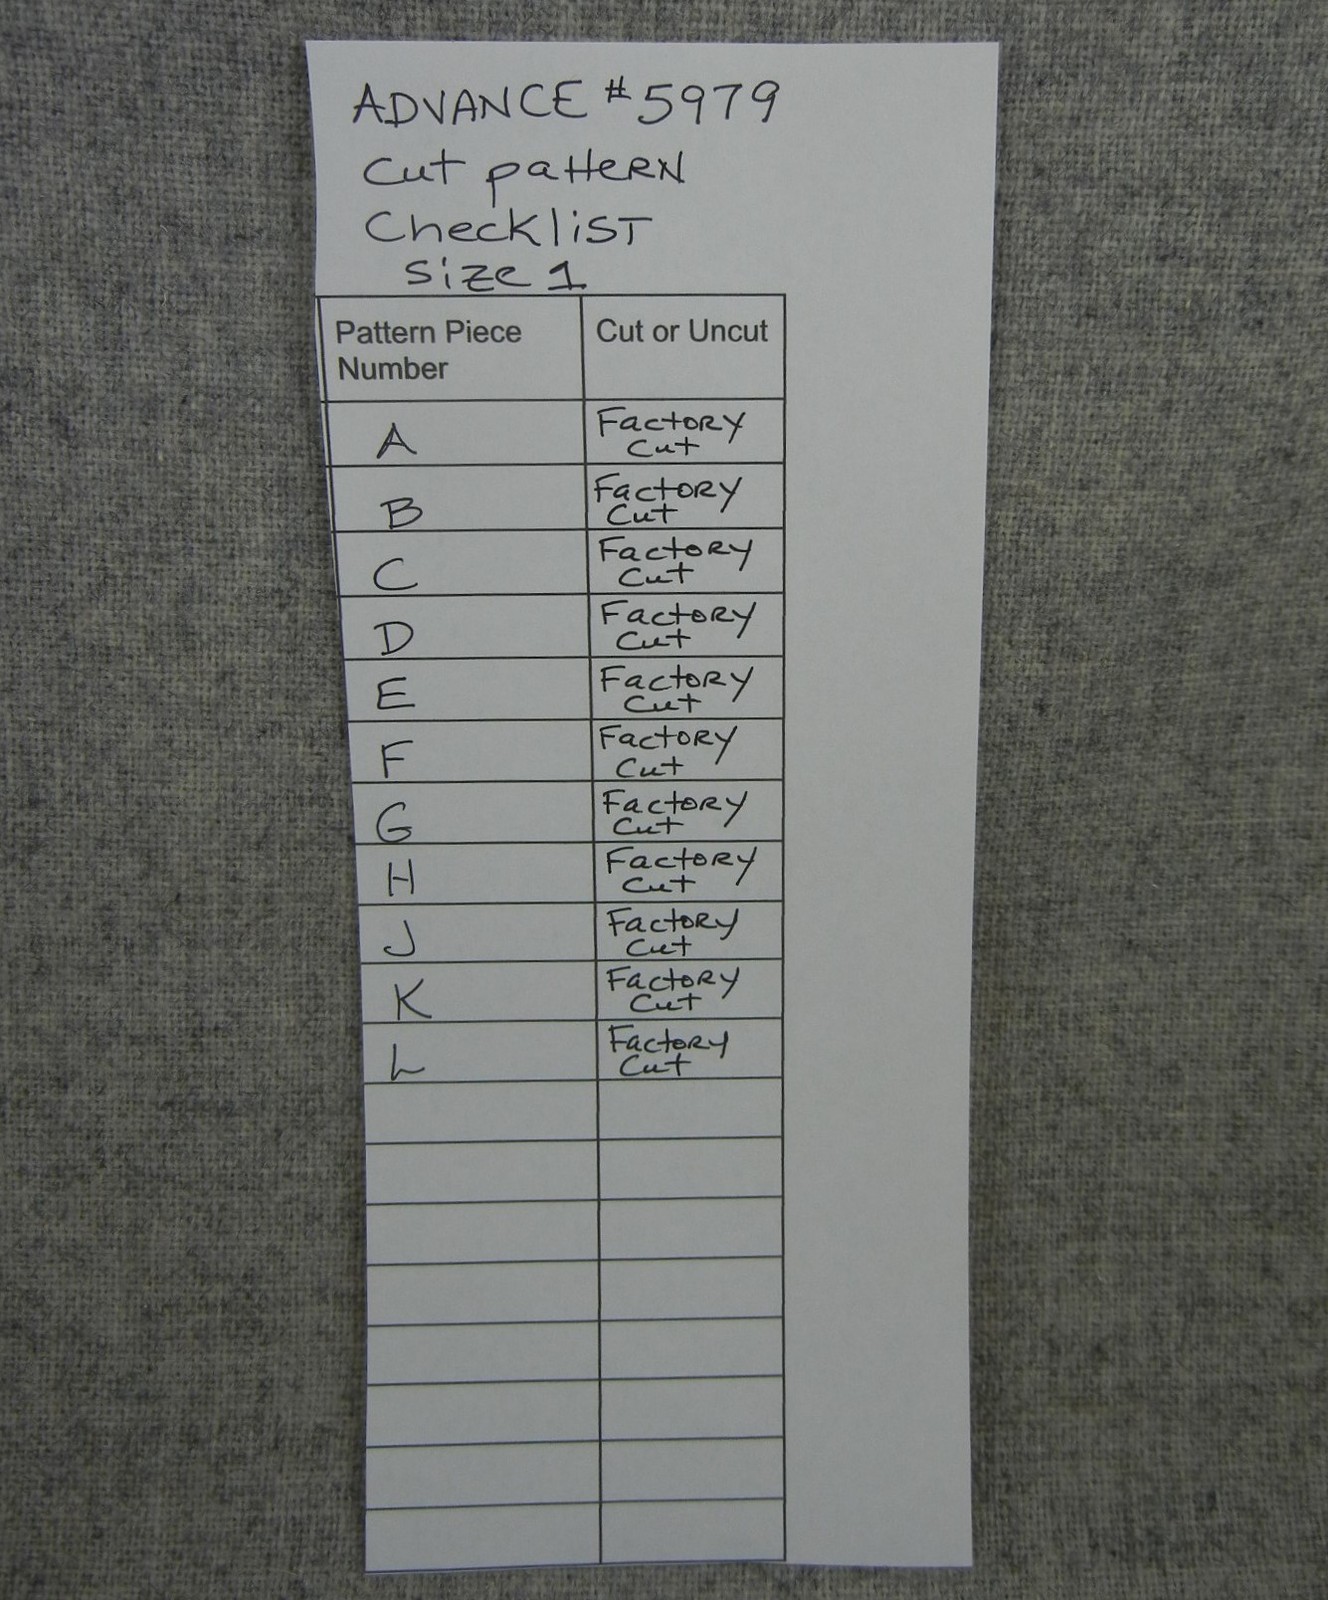 ADVANCE #5979
Cut pattern
Checklist
Size 1
Pattern Piece Number Cut or Uncut
A Factory Cut
B Factory Cut
C Factory Cut
D Factory Cut
E Factory Cut
F Factory Cut
G Factory Cut
H Factory Cut
J Factory Cut
K Factory Cut
L Factory Cut